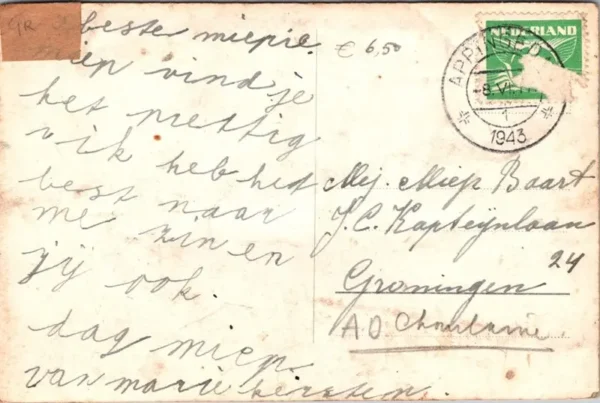 GR
beste miepie.
miep vind je
het nettig
ik heb het
best naar
me zin en
jij ook.
dag miep
van marie kersten.
€ 6,50
NEDERLAND
1
1943
Mej. Miep Baart
J.C. Kapteijnlaan
24
Groningen
A.D.